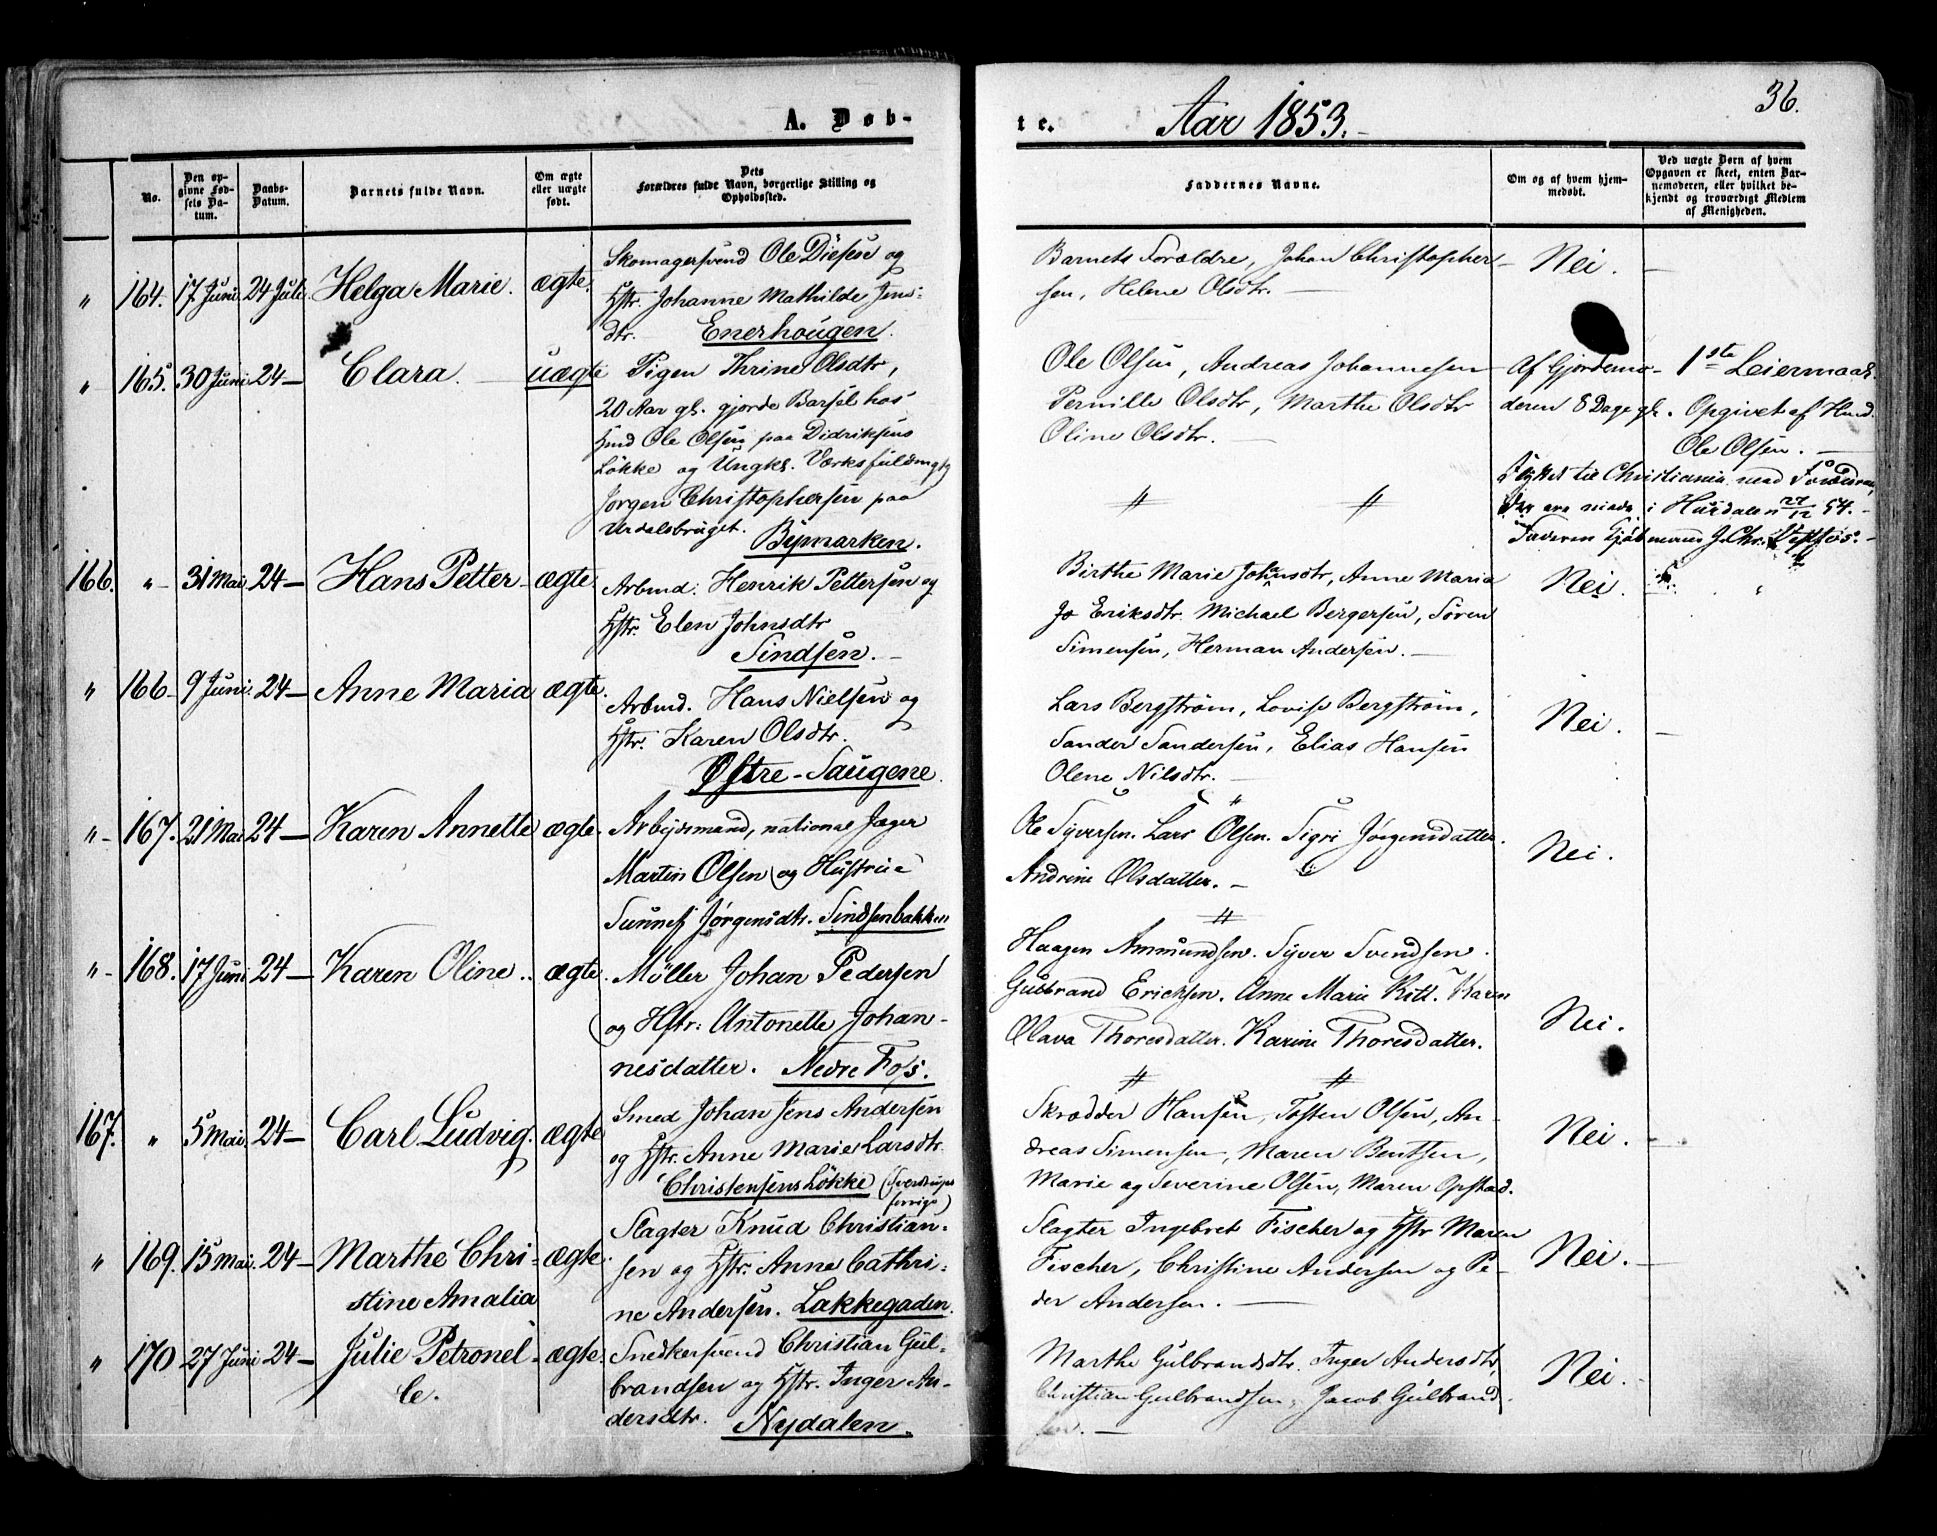 A. Døb-
te.
Aar 1853.-
36.
No.
Den op-
givne Fød-
sels Da-
tum.
Daabs-
Datum.
Barnets fulde Navn.
Om ægte
eller uægte
født.
Dets
Forældres fulde Navn, borgerlige Stilling og
Opholdssted.
Faddernes Navne.
Om og af hvem hjem-
medøbt.
Ved uægte Børn af hvem
Opgaven er skeet, enten Bar-
nemoderen, eller hvilket be-
kjendt og troværdigt Medlem
af Menigheden.
" 164. 17 Juni 24 Juli Helga Marie. ægte.
Skomagersvend Ole Diesese og
Hstr. Johanne Mathilde Jens-
dtr. Enerhougen.
Barnets Forældre, Johan Christopher-
sen, Helene Olsdtr. —
Nei. —
" 165. 30 Juni 24— Clara. — uægte
Pigen Thrine Olsdtr,
20 Aar gl. gjorde Barsel hos
Hmd Ole Olsen paa Didriksens
Løkke og Ungk. Værksfuldmgtg
Jørgen Christophersen paa
Urdalsbruget. Bymarken.
Ole Olsen, Andreas Johannesen
Pernille Olsdtr, Marthe Olsdtr
Oline Olsdtr. —
Af Gjordemo-
deren 8 Dage gl.
1ste Leiermaal.
Opgivet af Hmd.
Ole Olsen. —
til Christiania med
i Hurdalen 27/12 54.
Faderen
166. "- 31 Mai 24— Hans Petter- ægte.
Arbmd. Henrik Pettersen og
Hstr. Elen Johnsdtr
Sindsen. —
Birthe Marie Johansdtr, Anne Maria
Jo Eriksdtr. Michael Bergersen, Søren
Simensen, Herman Andersen. —
Nei.
" 166- 9 Juni. 24— Anne Maria ægte.
Arbmd. Hans Nielsen og
Hstr. Karen Olsdtr.
Østre-Saugene.
Lars Bergstrøm, Lovise Bergstrøm,
Sander Sandersen, Elias Hansen
Olene Nilsdtr. —
Nei. —
"- 167. 21 Mai 24— Karen Annette ægte.
Arbejdsmand, national Jæger
Martin Olsen og Hustrue
Sunnefj Jørgensdtr. Sindsenbakken
Ole Syversen. Lars Olsen. Sigri Jørgensdatter.
Andrine Olsdatter. —
Nei.
"- 168. 17 Juni 24— Karen Oline.. ægte.
Møller Johan Pedersen
og Hstr: Antonette Johan-
nesdatter. Nedre Foss.
Haagen Ammundsen. Syver Svendsen.
Gulbrand Ericksen. Anne Marie Kitl. Karen
Olava Thoresdatter. Karine Thoresdatter.
Nei.
167. " 5 Mai. 24— Carl Ludvig. ægte
Smed Johan Jens Andersen
og Hstr. Anne Marie Larsdtr.
Christensens Løkke (Sverdrups
forrige)
Skrædder Hansen, Tosten Olsen, An-
dreas Simensen, Maren Bentsen,
Marie og Severine Olsen, Maren Opstad.
Nei. —
" 169. 15 Mai. 24— Marthe Chri- ægte.
stine Amalia
Slagter Knud Christian-
sen og Hstr. Anne Cathri-
ne Andersen. Lakkegaden.
Slagter Ingebret Fischer og Hstr Maren
Fischer, Christine Andersen og Pe-
der Andersen. —
Nei. —
" 170 27 Juni 24— Julie Petronel- ægte.
le.
Snedkersvend Christian Gul-
brandsen og Hstr. Inger An-
dersdtr. Nydalen.
Marthe Gulbrandsdtr. Inger Andersdtr,
Christian Gulbrandsen, Jacob Gulbrand-
sen. —
Nei.